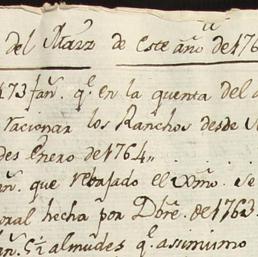 del Marz de este año de 176
473 fañ. q.e en la quenta del
racionar los Ranchos desde
des Enero de 1764,,
añ. que rebajado el Dmo. Se
oral hecha por Dbre. de 1763.
añ. 5½ almudes q.e assimismo